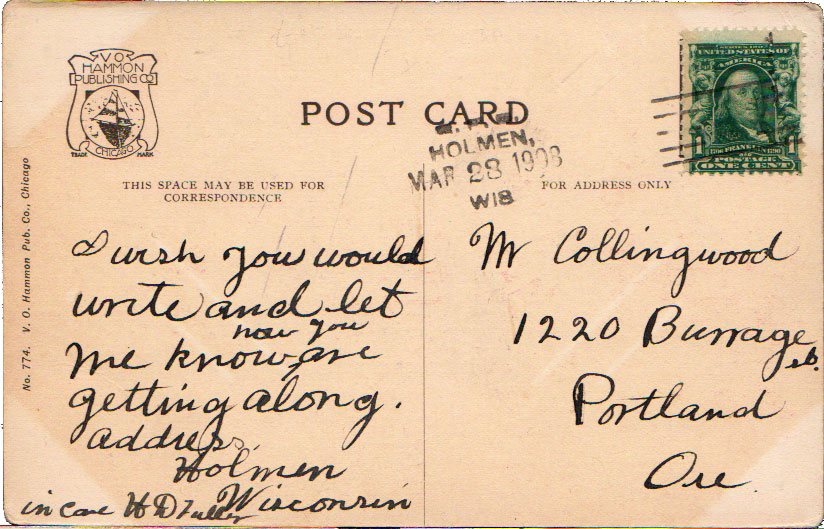 V O
HAMMON
PUBLISHING CO
CHICAGO
TRADE MARK
POST CARD
HOLMEN,
MAR 28 1908
WIS
SERIES 1902
UNITED STATES OF
AMERICA
1706 FRANKLIN 1790
POSTAGE
ONE CENT
THIS SPACE MAY BE USED FOR
CORRESPONDENCE
FOR ADDRESS ONLY
No. 774. V. O. Hammon Pub. Co., Chicago
I wish you would
write and let
how you
me know, are
getting along.
address,
Holmen
Wisconsin
in care H D Fuller
Mr Collingwood
1220 Burrage
Portland
Ore.